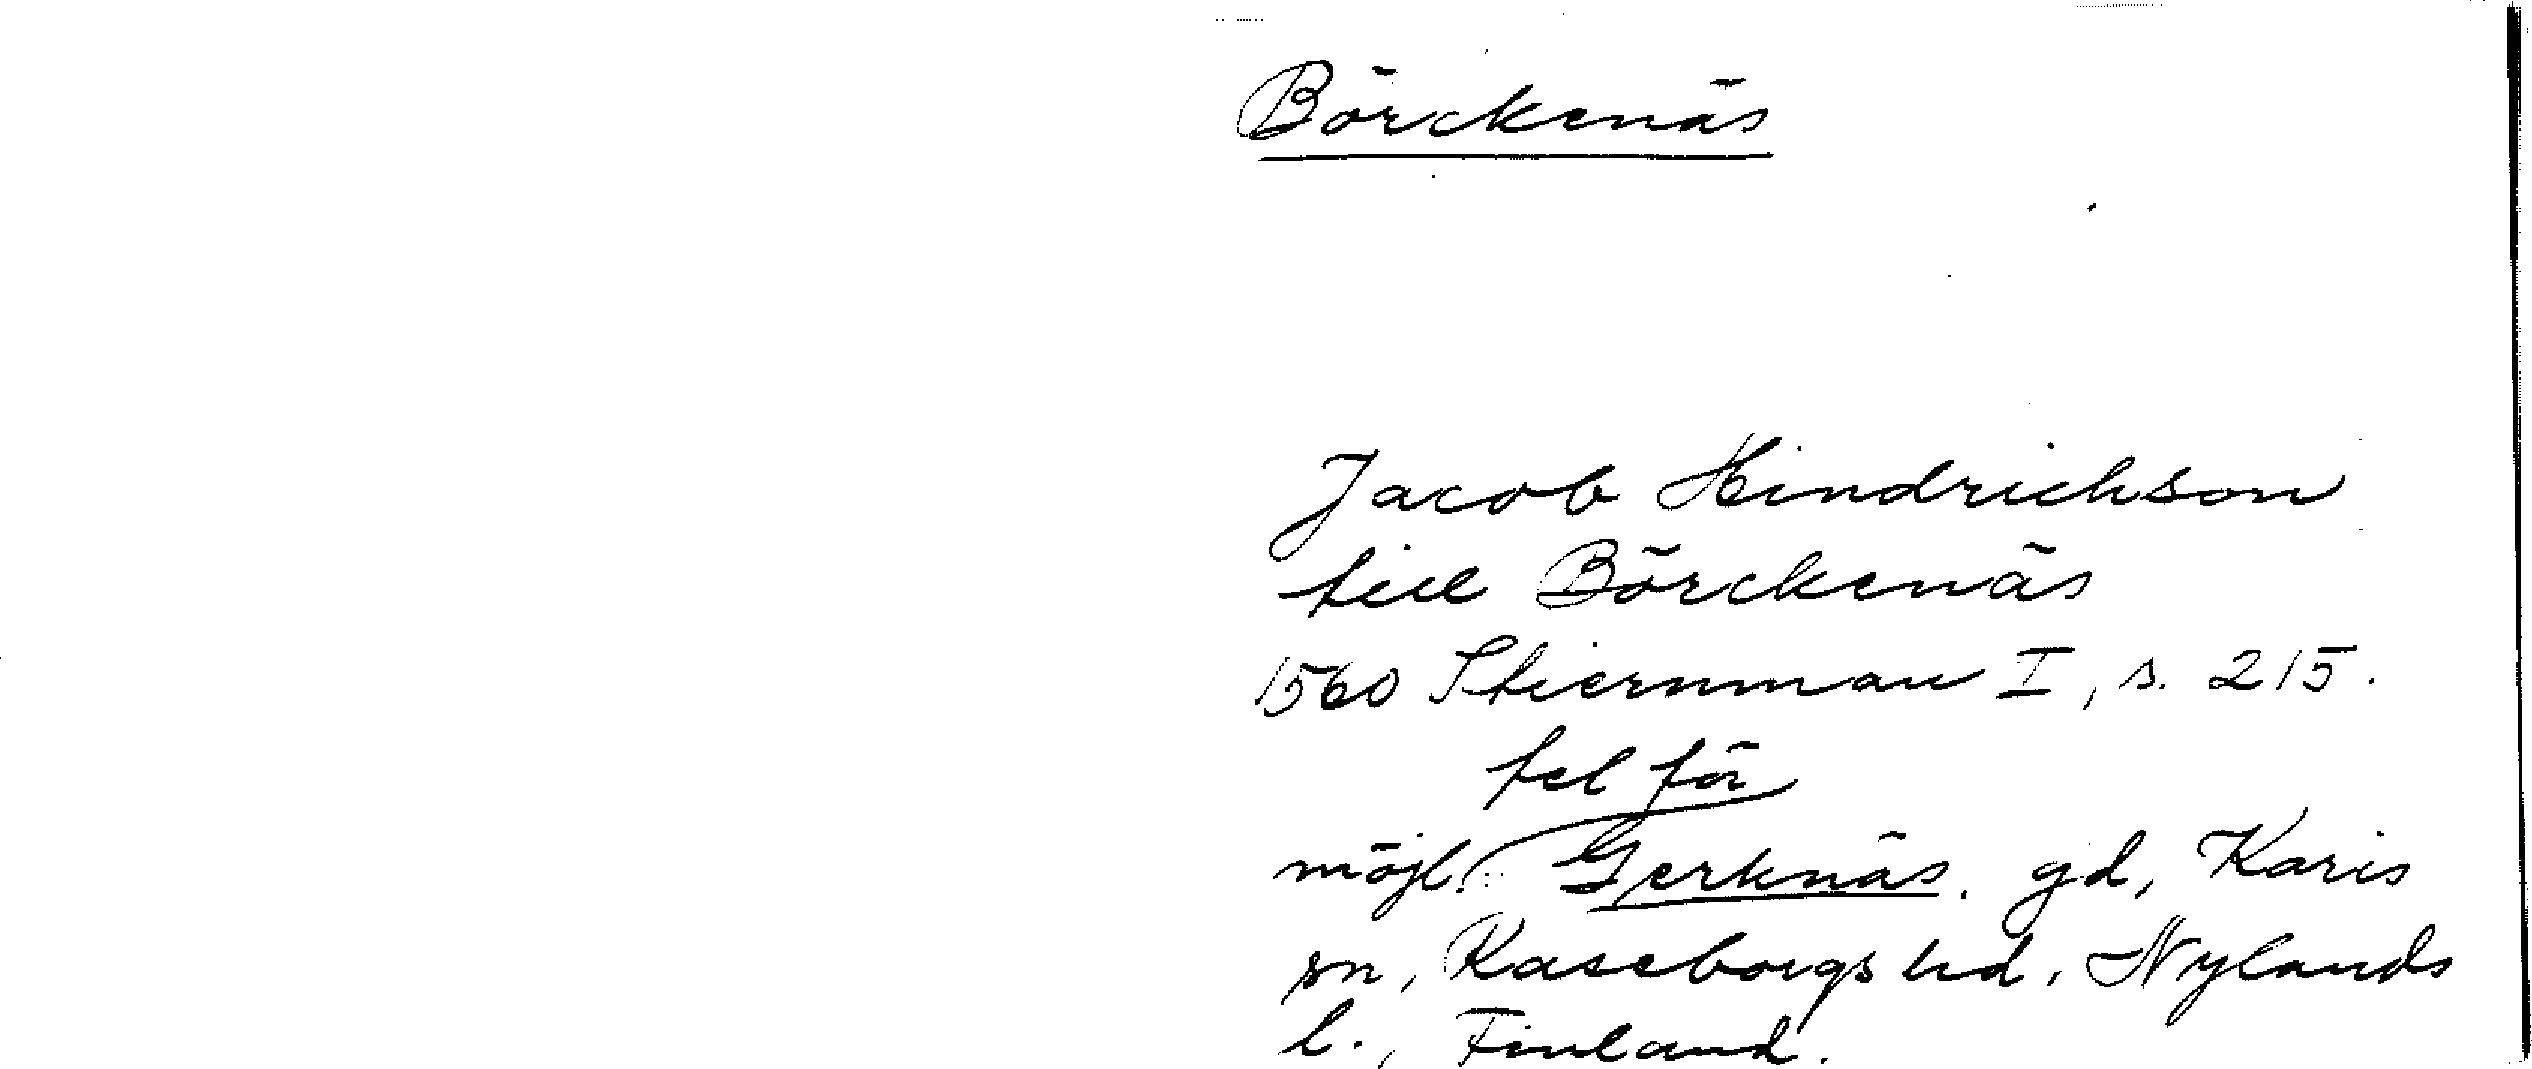 Börckenäs
Jacob Hindrichson
till Börckenäs
1560 Stiernman I, s. 215.
fel för
möjl. Gerknäs. gd, Karis
sn, Raseborgs hd, Nylands
l., Finland.